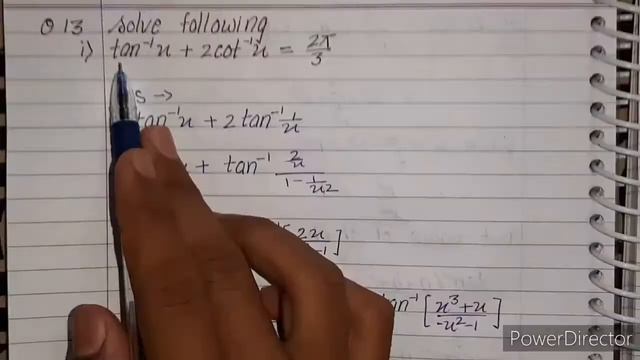 Q 13 Solve following
i) tan⁻¹x + 2cot⁻¹x = 2π/3
S →
tan⁻¹x + 2tan⁻¹ 1/x
+ tan⁻¹ (2/x)/(1 - 1/x2)
2x ]
-1
tan⁻¹ [ (x³+x)/(-x²-1) ]
PowerDirector